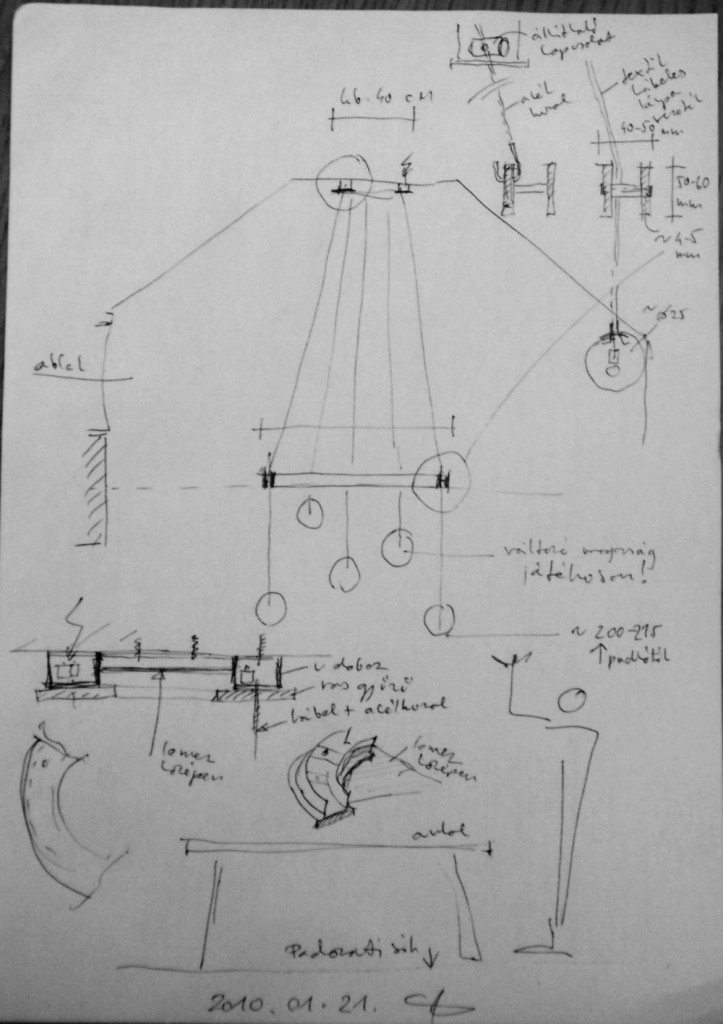 állítható
kapcsolat
kb. 40 cm
acél
huzal
textil
kábeles
lámpa
vezeték
40-50
mm
50-60
mm
~ 4-5
mm
~ ø25
ablak
változó magasság
játékosan!
~ 200-215
↑ padlótól
U doboz
vas gyűrű
kábel + acélhuzal
lemez
középen
lemez
középen
asztal
Padozati sík ↓
2010.01.21.